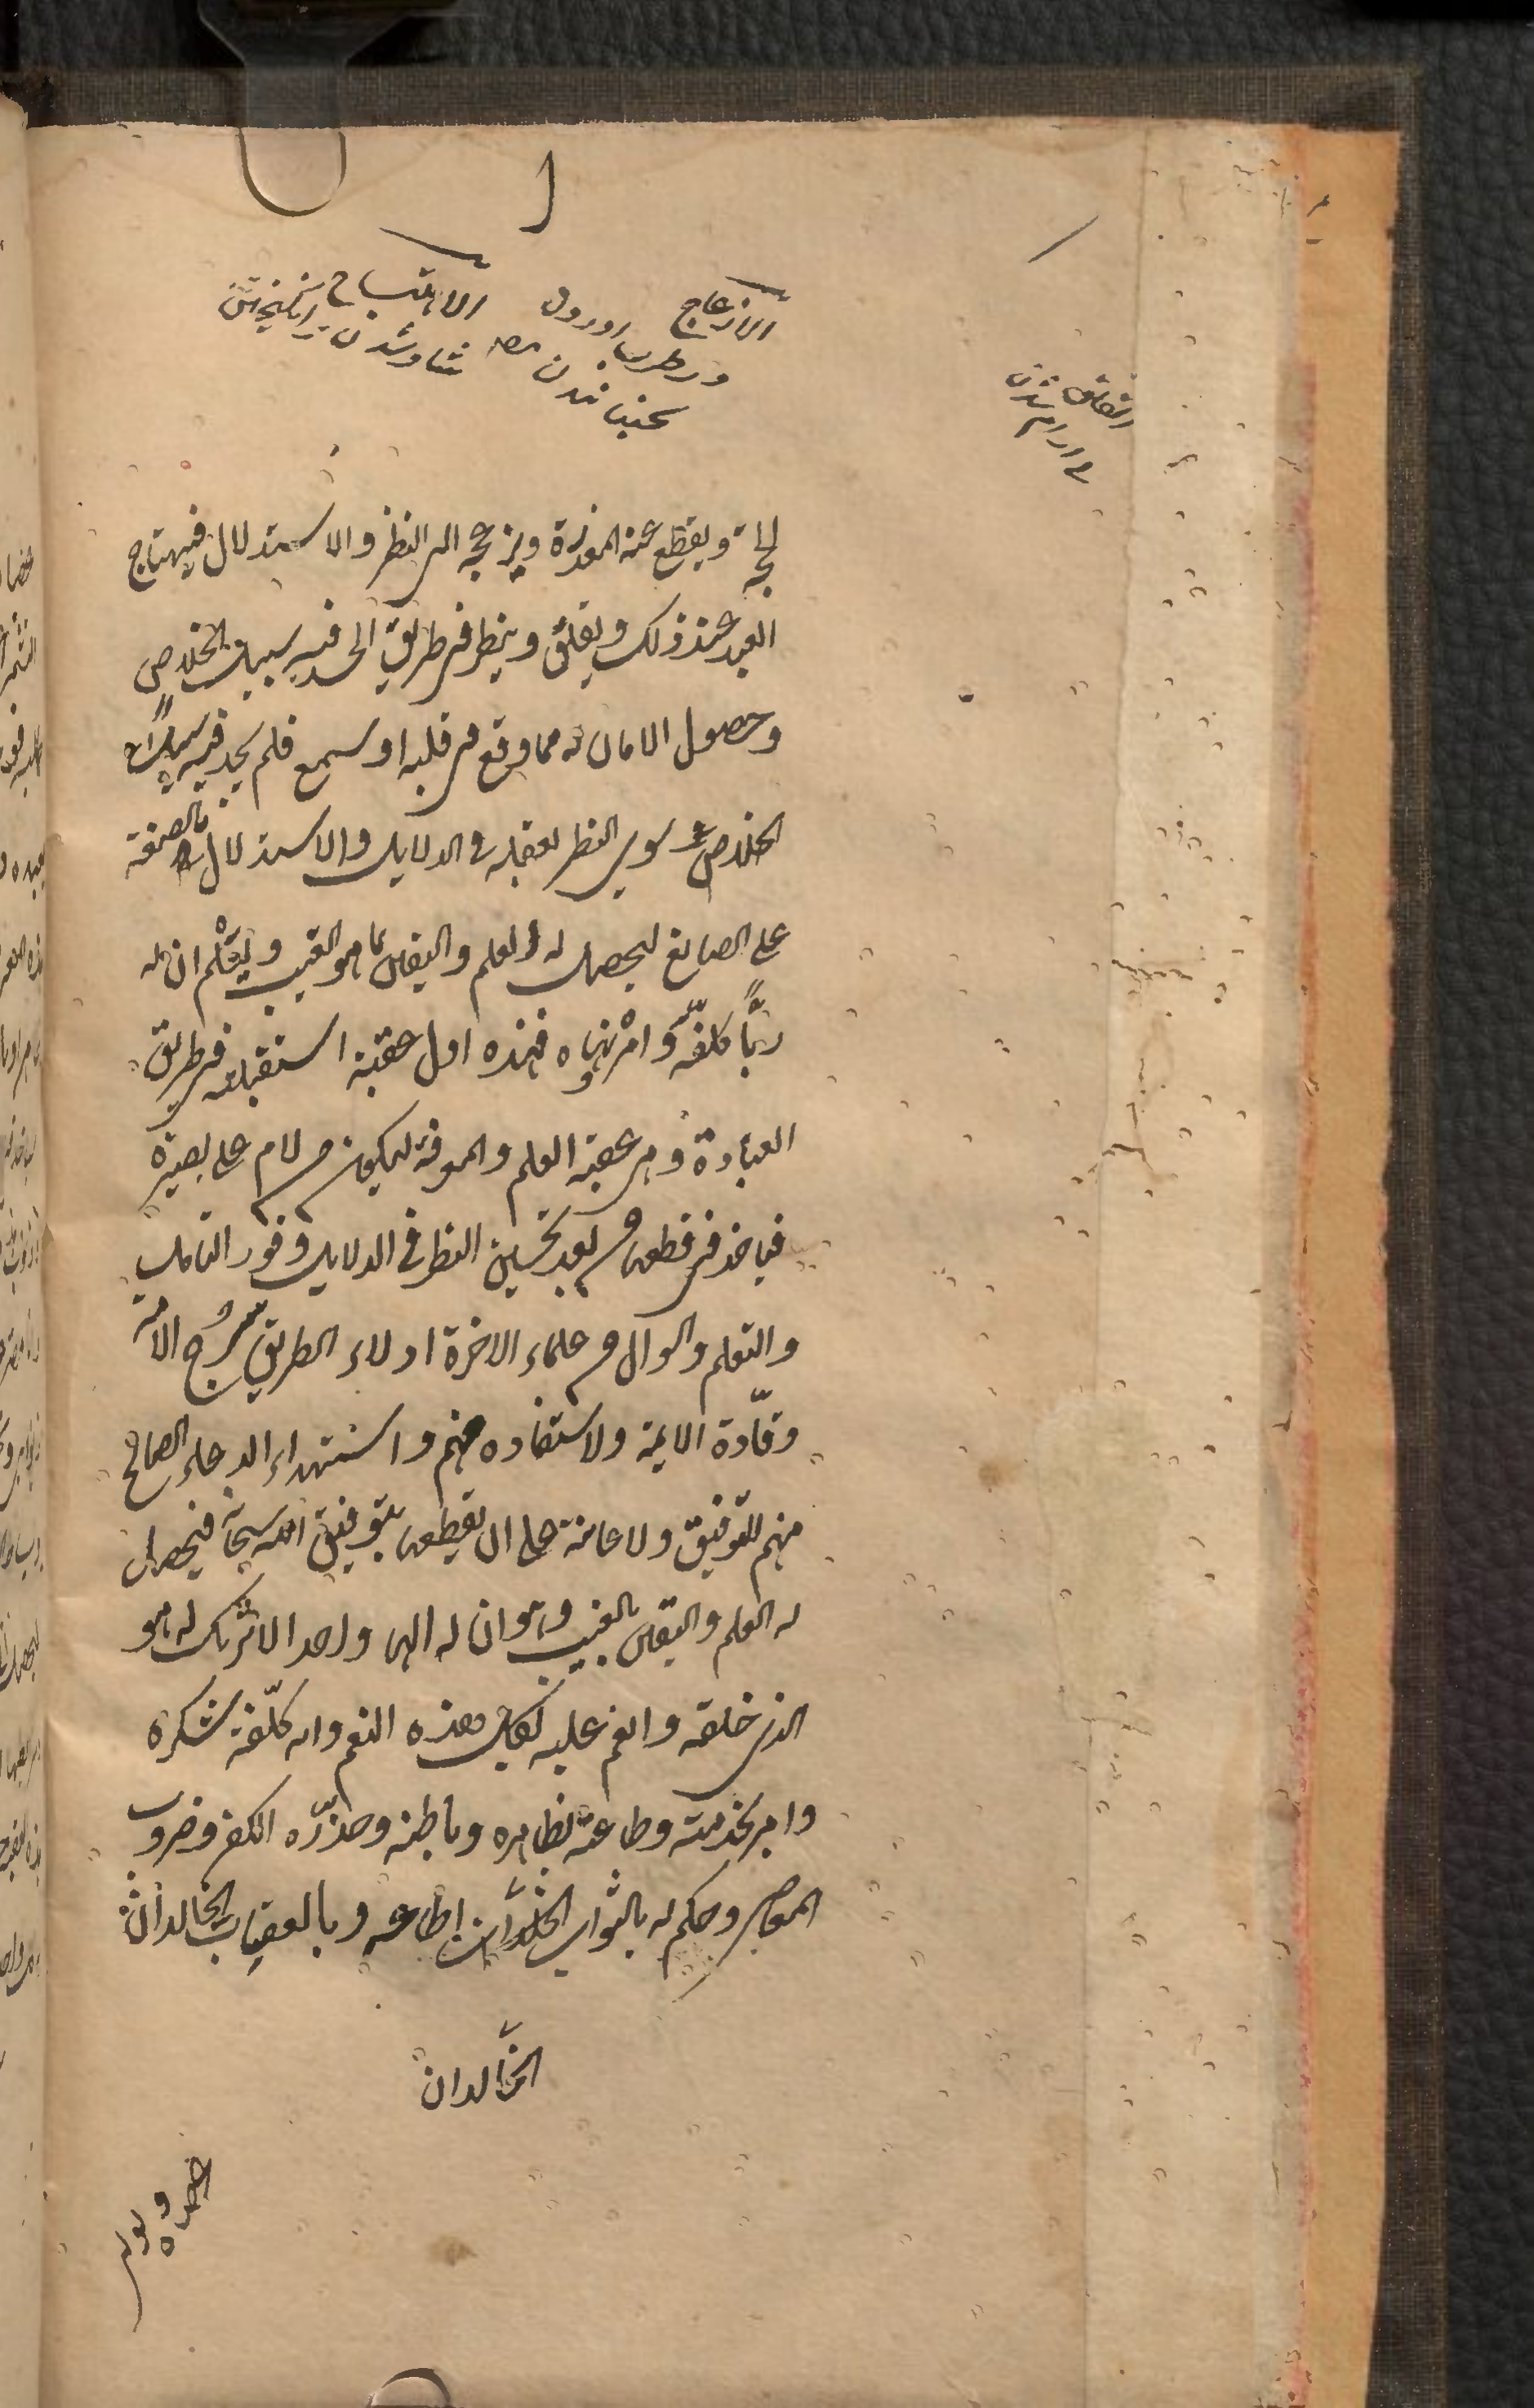 الازعاج
ور طرب اوردن
بجنبانیدن
الاهتیاج
شاد شدن بر انگیختن
بی ارام شدن
لحجة ويقطع عنه المعذرة ويزعجه الى النظر والاستدلال فيهتاج
العبد عند ذلك ويقلق وينظر في طريق الى فيه سبيل الخلاص
وحصول الامان له مما وقع في قلبه او سمع فلم يجد فيه سبيلا
الخلاص سوى النظر بعقله في الدلايل والاستدلال بالصنعة
على الصانع ليحصل له العلم واليقين بما هو الغيب ويعلم ان له
ربًّا كلفه وامره ونهاه فهذه اول عقبة استقبلته في طريق
العبادة وهي عقبة العلم والمعرفة ليكون من الامر على بصيرة
فياخذ في قطعها من بعد تحسين النظر في الدلايل وفور التامل
والتعلم والسوال من علماء الاخرة ادلاء الطريق سُرُج الامة
وقادة الايمة ولاستفاده منهم واستهداء الدعاء الصالح
منهم للتوفيق ولاعانة على ان يقطعها بتوفيق الله سبحانه فيحصل
له العلم واليقين بالغيب وهو ان له الها واحدا لاشريك له هو
الذي خلقه وانعم عليه بكل هذه النعم وانه كلّفه شكره
وامر بخدمته وطاعته بظاهره وباطنه وحذّره الكفر وضروب
المعاصي وحكم له بالثواب الخالد ان اطاعه وبالعقاب الخالد ان
الخالدان